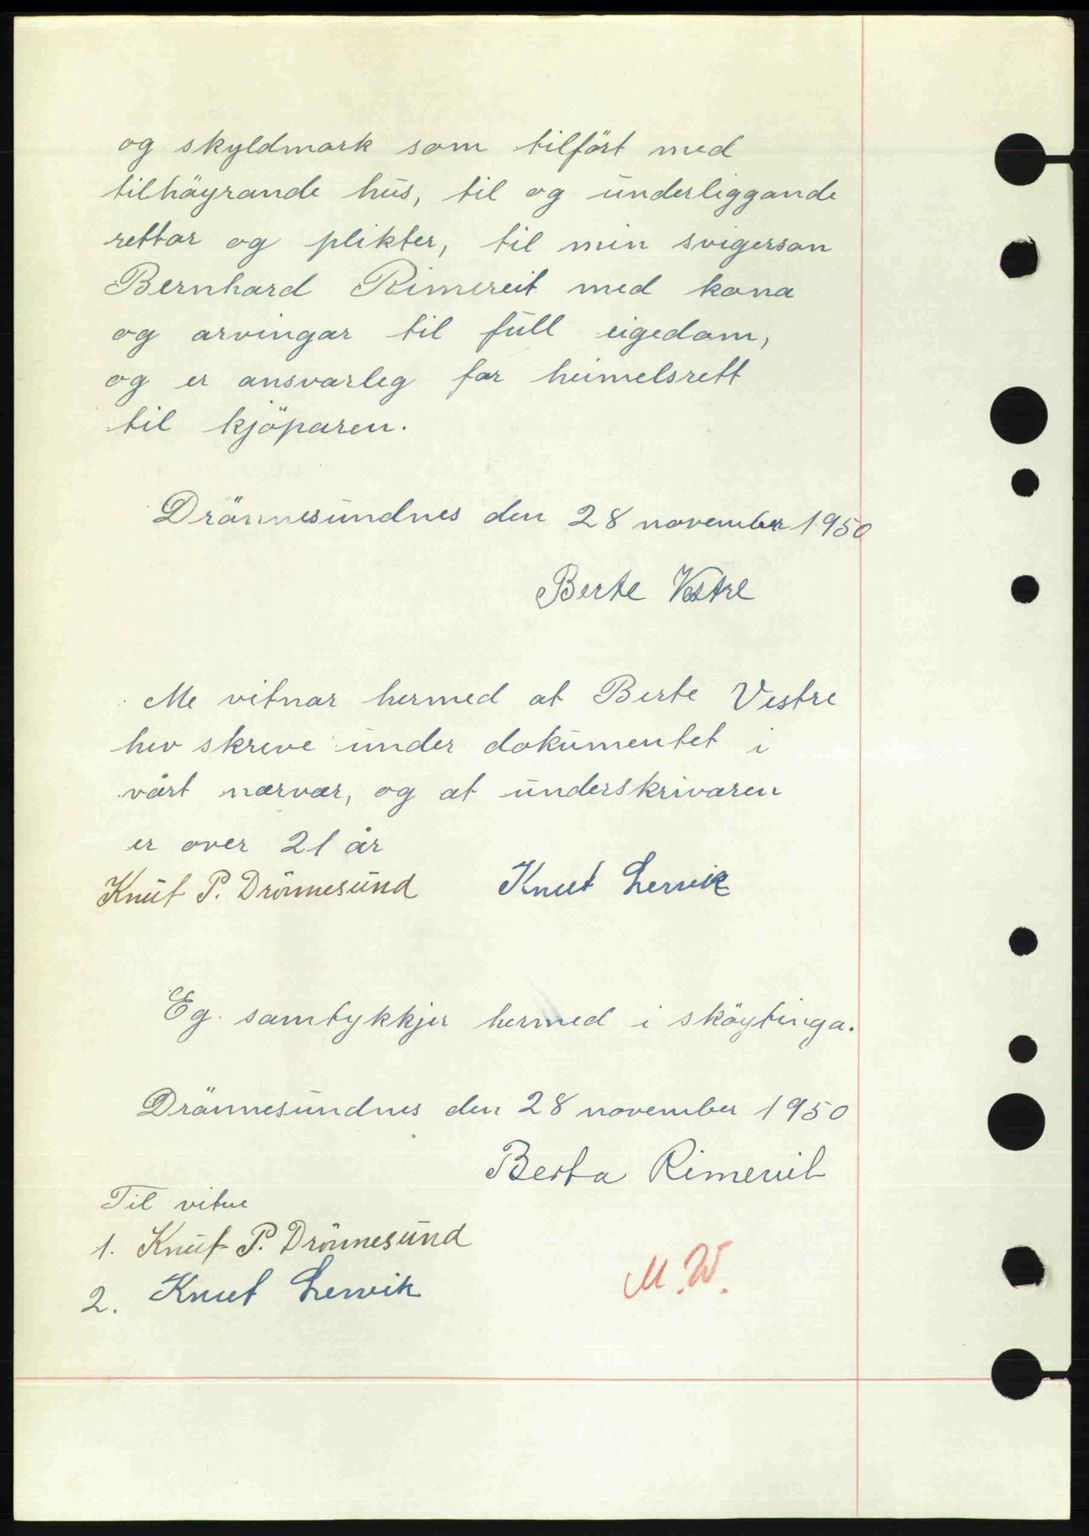 og skyldmark som tilfört med
tilhöyrande hus, til og underliggande
rettar og plikter, til min svigerson
Bernhard Rimereit med kona
og arvingar til full eigedom,
og er ansvarleg for heimelsrett
til kjöparen.
Drönnesundnes den 28 november 1950
Berte Vestre
Me vitnar hermed at Berte Vestre
hev skreve under dokumentet i
vårt nærvær, og at underskrivaren
er over 21 år
Knut P. Drönnesund Knut Lervik
Eg samtykkjer hermed i sköytinga.
Drönnesundnes den 28 november 1950
Berta Rimereit
Til vitne
1. Knut P. Drönnesund
2. Knut Lervik
M.W.